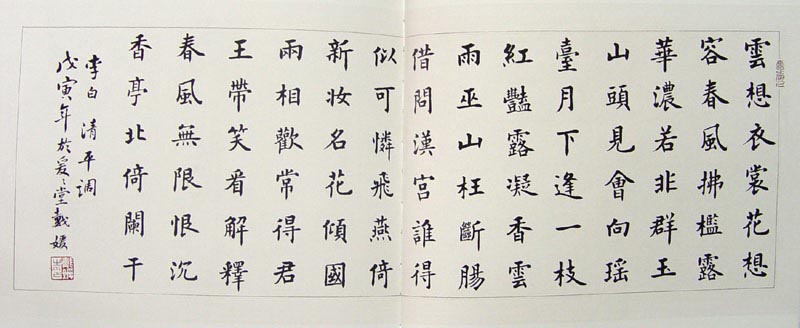 雲想衣裳花想
容春風拂檻露
華濃若非群玉
山頭見會向瑶
臺月下逢一枝
紅豔露凝香雲
雨巫山枉斷腸
借問漢宮誰得
似可憐飛燕倚
新妝名花傾國
兩相歡常得君
王帶笑看解釋
春風無限恨沉
香亭北倚闌干
李白 清平调
戊寅年於爰〻堂戴